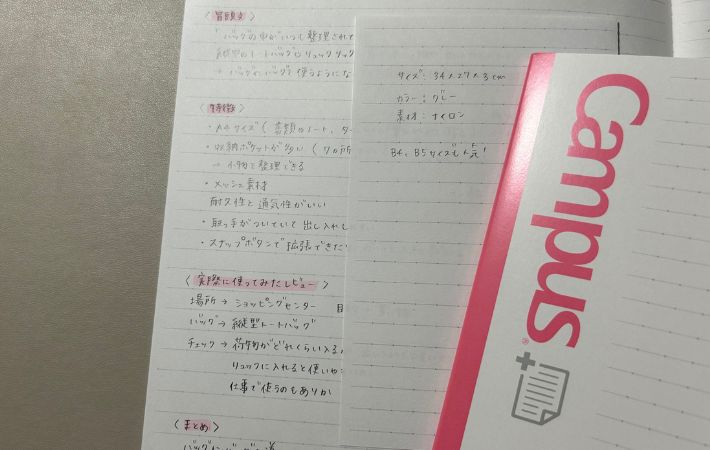 〈冒頭文〉
「バッグの中がいつも整理された
縦型のトートバッグもリュックサック
→ バッグインバッグを使うようにな
〈特徴〉
・A4サイズ（書類やノート、タ
・収納ポケットが多い（7カ所
→ 小物も整理できる
・メッシュ素材
耐久性と通気性がいい
・取っ手がついていて出し入れし
・スナップボタンで拡張できた
〈実際に使ってみたレビュー〉
場所→ショッピングセンター
バッグ→縦型トートバッグ
チェック→荷物がどれくらい入る
リュックに入れると使いや
仕事で使うのもありか
〈まとめ〉
バッグインバッグ
サイズ：34×27×3cm
カラー：グレー
素材：ナイロン
B4、B5サイズも
Campus®